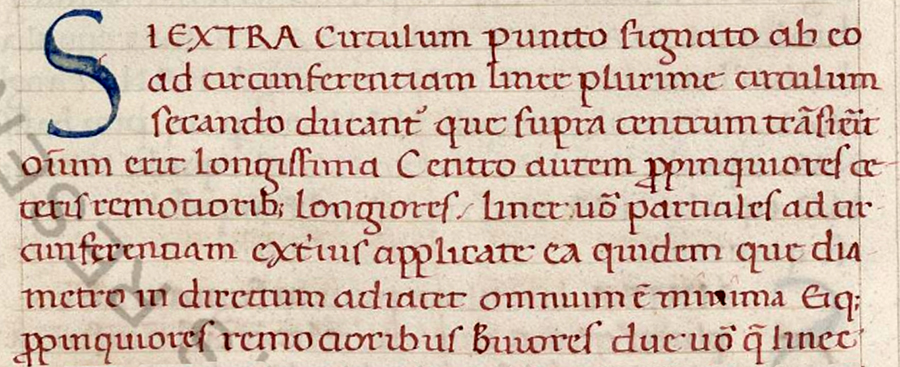 SI EXTRA Circulum puncto signato ab eo
ad circunferentiam linee plurime circulum
secando ducantʼ que supra centrum trāsiēīt
oīum erit longissima Centro autem ꝓpinquiores ce-
teris remotiorib; longiores / linee uō partiales ad cir-
cunferentiam exťius applicate ea quidem que dia
metro in directum adiacet omnium ē minima Eiq;
ꝓpinquiores remotioribus b̄uiores due uō q̄ linee